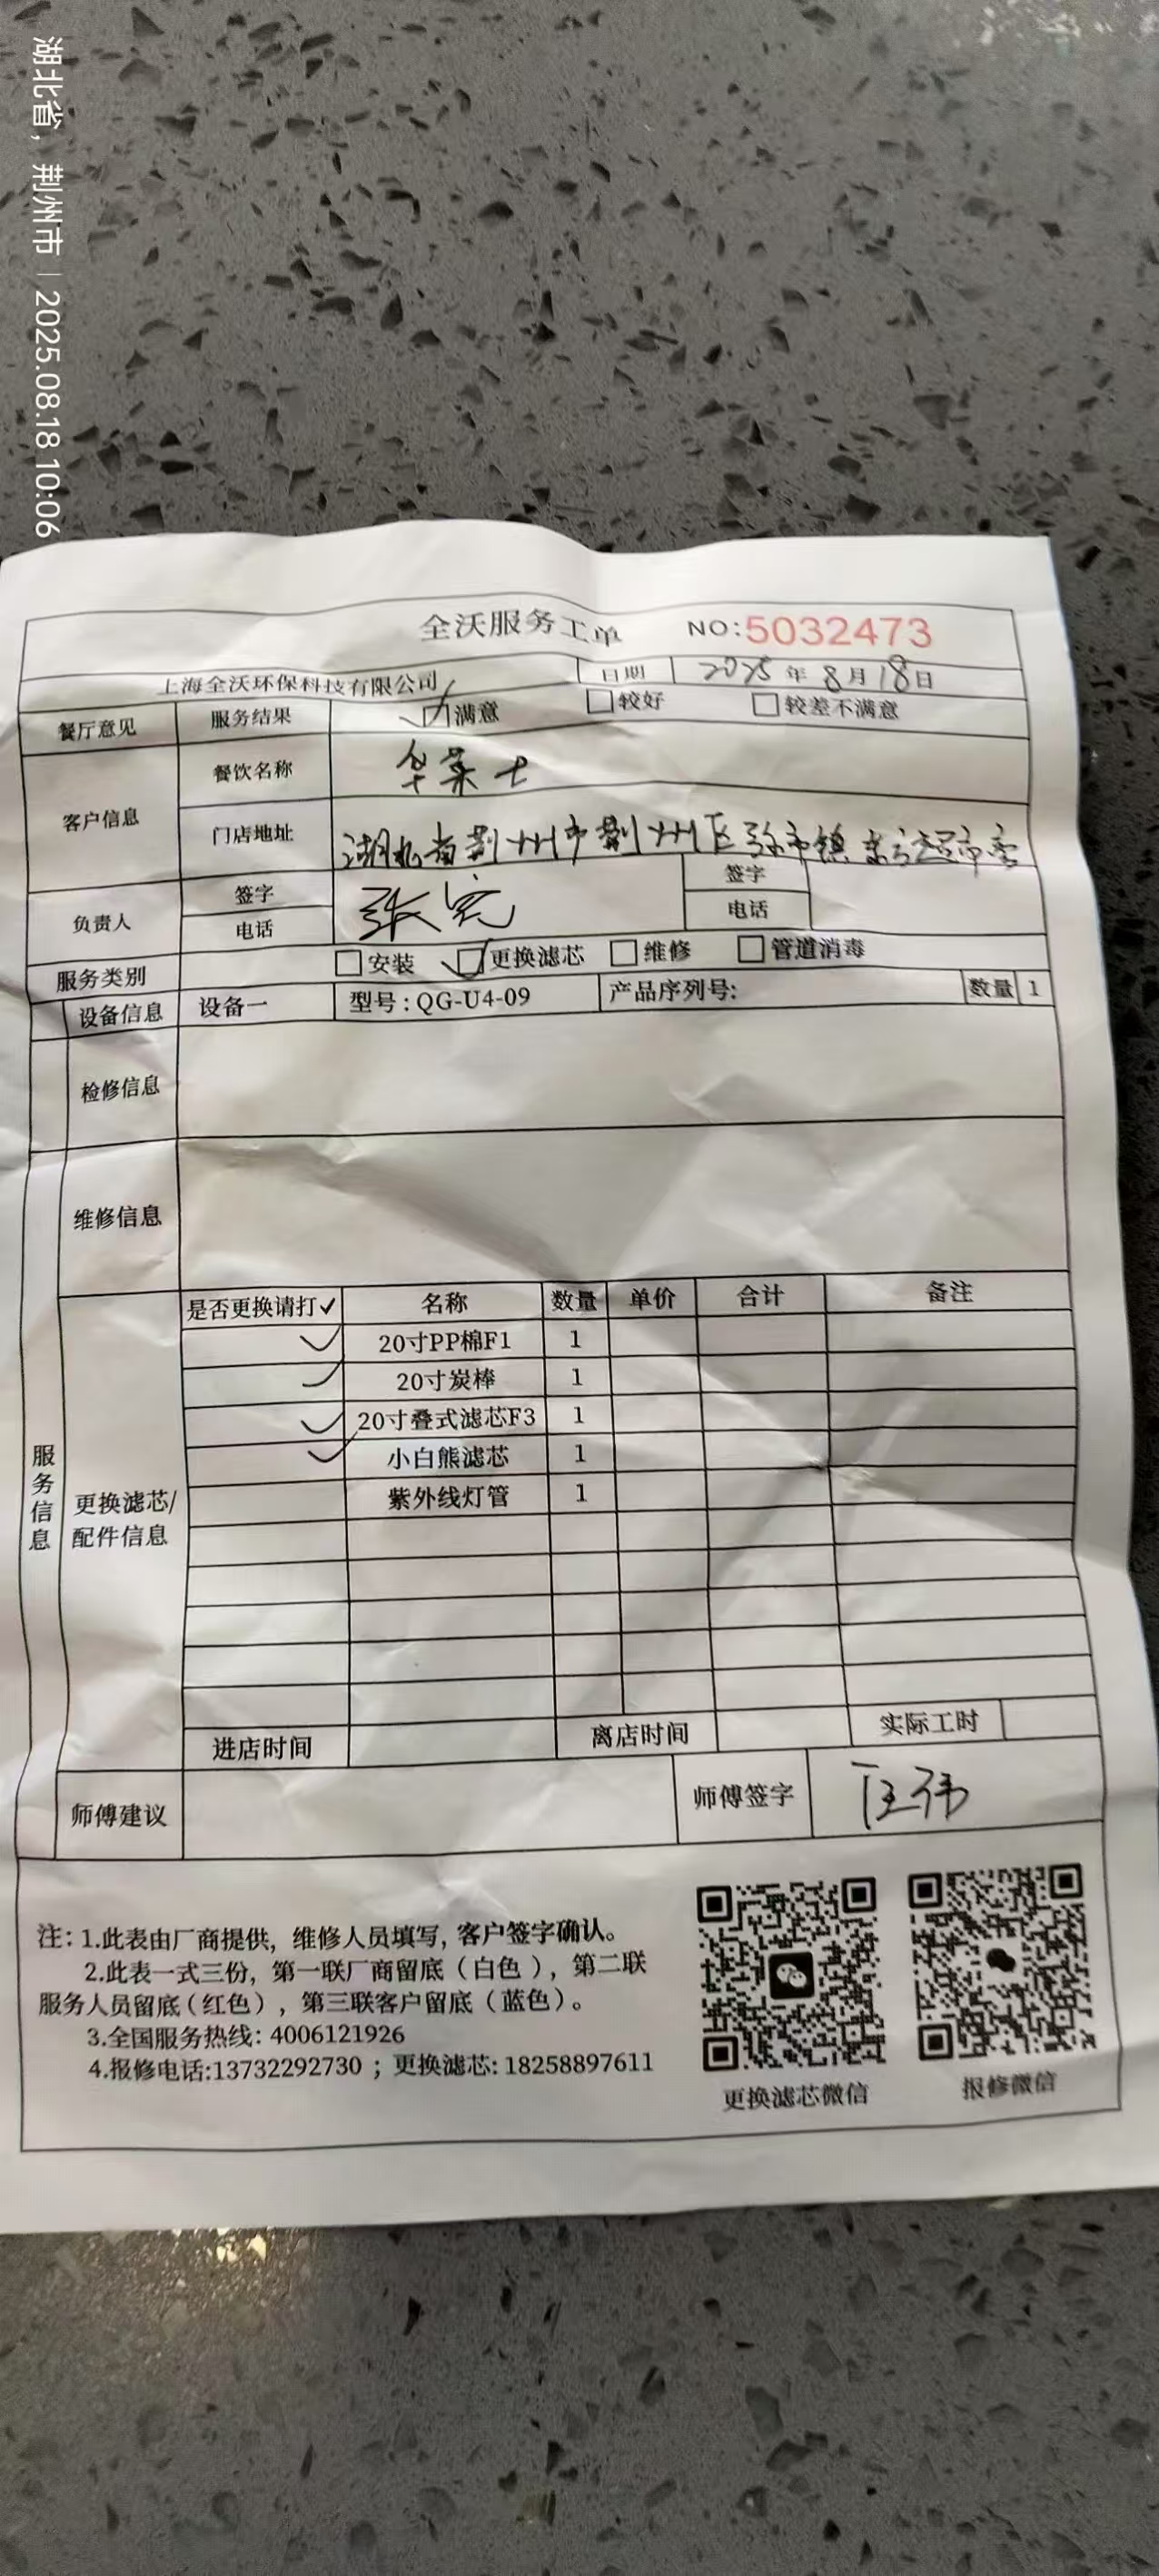 湖北省，荆州市 | 2025.08.18 10:06
全沃服务工单 NO:5032473
上海全沃环保科技有限公司 日期 2025年8月18日
餐厅意见 服务结果 满意 较好 较差不满意
客户信息 餐饮名称 华莱士
门店地址 湖北省荆州市荆州区弥市镇
负责人 签字 张 签字
电话 电话
服务类别 安装 更换滤芯 维修 管道消毒
设备信息 设备一 型号：QG-U4-09 产品序列号: 数量 1
检修信息
维修信息
服务信息
更换滤芯/配件信息
是否更换请打✓ 名称 数量 单价 合计 备注
✓ 20寸PP棉F1 1
✓ 20寸炭棒 1
✓ 20寸叠式滤芯F3 1
✓ 小白熊滤芯 1
紫外线灯管 1
进店时间 离店时间 实际工时
师傅建议 师傅签字 汪伟
注：1.此表由厂商提供，维修人员填写，客户签字确认。
2.此表一式三份，第一联厂商留底（白色），第二联
服务人员留底（红色），第三联客户留底（蓝色）。
3.全国服务热线：4006121926
4.报修电话:13732292730；更换滤芯：18258897611
更换滤芯微信 报修微信